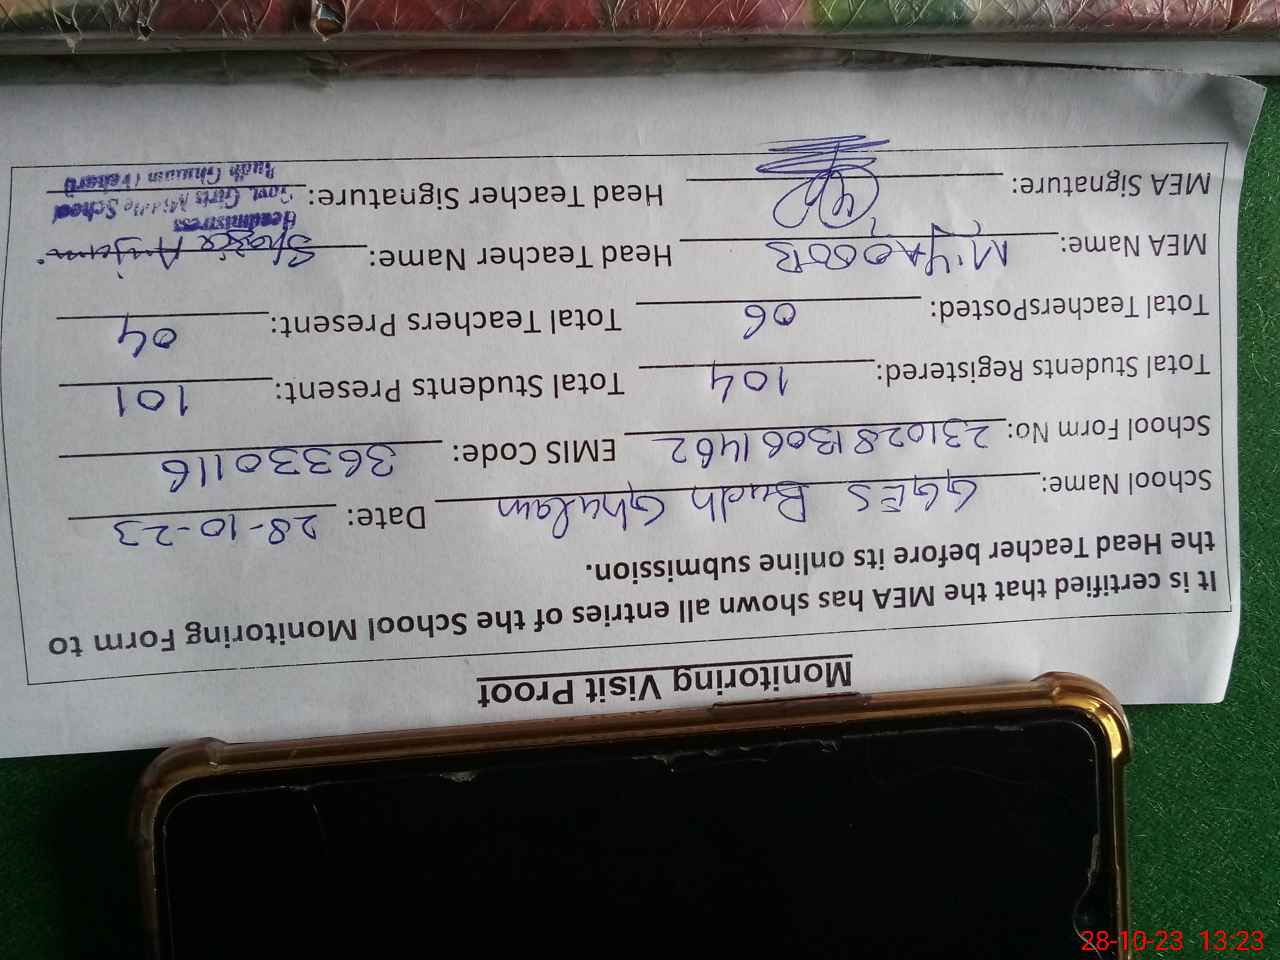 Monitoring Visit Proof
It is certified that the MEA has shown all entries of the School Monitoring Form to
the Head Teacher before its online submission.
School Name: GGES Budh Ghulam Date: 28-10-23
School Form No: 23102813061462 EMIS Code: 36330116
Total Students Registered: 104 Total Students Present: 101
Total TeachersPosted: 06 Total Teachers Present: 04
MEA Name: M. YAQOOB Head Teacher Name: Shazia Anjum
MEA Signature: Head Teacher Signature:
Headmistress
Govt. Girls Middle School
Budh Ghulam (Vehari)
28-10-23 13:23